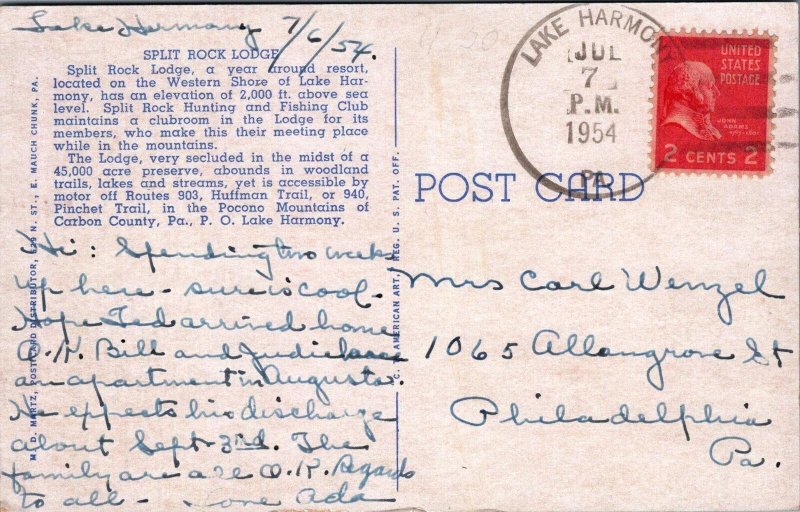 Lake Harmony 7/6/54.
SPLIT ROCK LODGE
Split Rock Lodge, a year around resort,
located on the Western Shore of Lake Har-
mony, has an elevation of 2,000 ft. above sea
level. Split Rock Hunting and Fishing Club
maintains a clubroom in the Lodge for its
members, who make this their meeting place
while in the mountains.
The Lodge, very secluded in the midst of a
45,000 acre preserve, abounds in woodland
trails, lakes and streams, yet is accessible by
motor off Routes 903, Huffman Trail, or 940,
Pinchet Trail, in the Pocono Mountains of
Carbon County, Pa., P. O. Lake Harmony.
Hi: Spending two weeks
up here - sure is cool.
Hope Ted arrived home
O.K. Bill and Judie have
an apartment in Augusta.
He expects his discharge
about Sept 3rd. The
family are all O.K. Regards
to all - Love Ada
M. D. MARTZ, POST CARD DISTRIBUTOR, 529 N. ST., E. MAUCH CHUNK, PA.
AMERICAN ART. REG. U. S. PAT. OFF.
POST CARD
LAKE HARMONY
JUL
7
P.M.
1954
PA.
UNITED
STATES
POSTAGE
JOHN
ADAMS
2 CENTS 2
Mrs Carl Wenzel
1065 Allangrove St
Philadelphia
Pa.